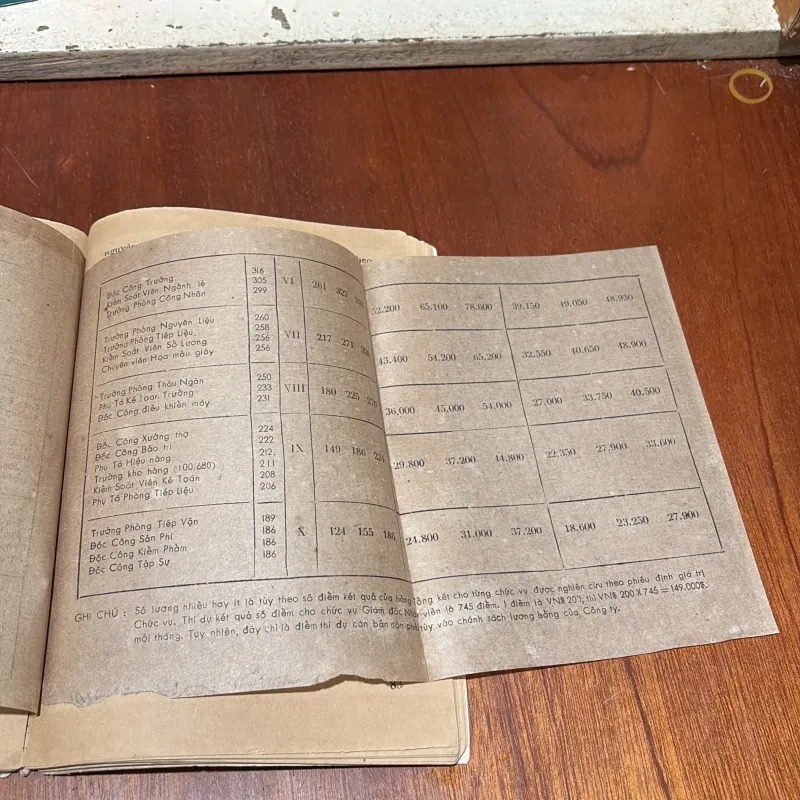 nguyên
Đốc Công Trưởng 316
Kiểm Soát Viên Ngành lẻ 305 VI 261 327 52.200 65.100 78.600 39.150 49.050 48.950
Trưởng Phòng Công Nhân 299
Trưởng Phòng Nguyên Liệu 260
Trưởng Phòng Tiếp Liệu 258 VII 217 271 43.400 54.200 65.200 32.550 40.650 48.900
Kiểm Soát Viên Sở Lương 256
Chuyên viên Họa màu giấy 256
Trưởng Phòng Thâu Ngân 250
Phụ Tá Kế Toán Trưởng 233 VIII 180 225 270 36,000 45,000 54,000 27,000 33.750 40,500
Đốc Công điều khiển máy 231
Đốc Công Xưởng thợ 224
Đốc Công Bảo trì 222
Phụ Tá Hiệu năng 212, IX 149 186 224 29.800 37.200 44.800 22.350 27,900 33,600
Trưởng kho hàng (100,680) 211
Kiểm Soát Viên Kế Toán 208
Phụ Tá Phòng Tiếp Liệu 206
Trưởng Phòng Tiếp Vận 189
Đốc Công Sản Phí 186 X 124 155 186 24.800 31.000 37.200 18.600 23.250 27.900
Đốc Công Kiểm Phẩm 186
Đốc Công Tập Sự 186
GHI CHÚ : Số lương nhiều hay ít là tùy theo số điểm kết quả của bảng tổng kết cho từng chức vụ được nghiên cứu theo phiếu định giá trị
Chức vụ. Thí dụ kết quả số điểm cho chức vụ Giám đốc Nhà máy viên là 745 điểm. 1 điểm là VN$ 200, thì VN$ 200 X 745 = 149.000$.
mỗi tháng. Tuy nhiên, đây chỉ là điểm thí dụ căn bản còn phải tùy vào chánh sách lương bổng của Công ty.